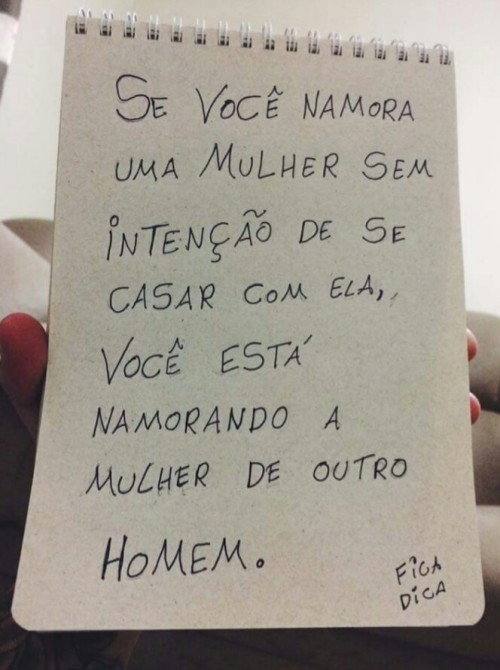 SE VOCÊ NAMORA
UMA MULHER SEM
INTENÇÃO DE SE
CASAR COM ELA,
VOCÊ ESTÁ
NAMORANDO A
MULHER DE OUTRO
HOMEM.
FICA
DICA